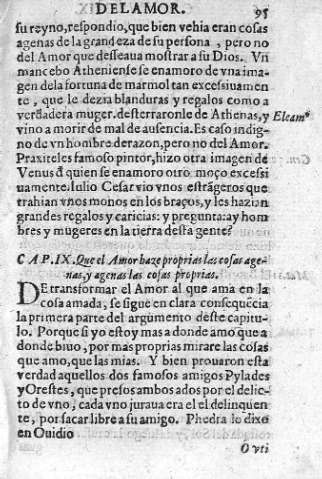 DEL AMOR. 95
su reyno, respondio, que bien vehia eran cosas
agenas de la grandeza de su persona, pero no
del Amor que desseaua mostrar a su Dios. Vn
mancebo Atheniense se enamoro de vna ima-
gen dela fortuna de marmol tan excessiuamen
te, que le dezia blanduras y regalos como a
verdadera muger. desterraronle de Athenas, y Eleam
vino a morir de mal de ausencia. Es caso indig-
no de vn hombre de razon, pero no del Amor.
Praxiteles famoso pintor, hizo otra imagen de
Venus d quien se enamoro otro moço excessi
uamente. Iulio Cesar vio vnos estrãgeros que
trahian vnos monos en los braços, y les hazian
grandes regalos y caricias: y pregunta: ay hom
bres y mugeres en la tierra desta gente?
CAP. IX. Que el Amor haze proprias las cosas age-
nas, y agenas las cosas proprias.
DE transformar el Amor al que ama en la
cosa amada, se sigue en clara consequẽcia
la primera parte del argumento deste capitu-
lo. Porque si yo estoy mas a donde amo que a
donde biuo, por mas proprias mirare las cosas
que amo, que las mias. Y bien prouaron esta
verdad aquellos dos famosos amigos Pylades
y Orestes, que presos ambos ados por el delic-
to de vno, cada vno juraua era el el delinquen
te, por sacar libre a su amigo. Phedra lo dixo
en Ouidio
O vti